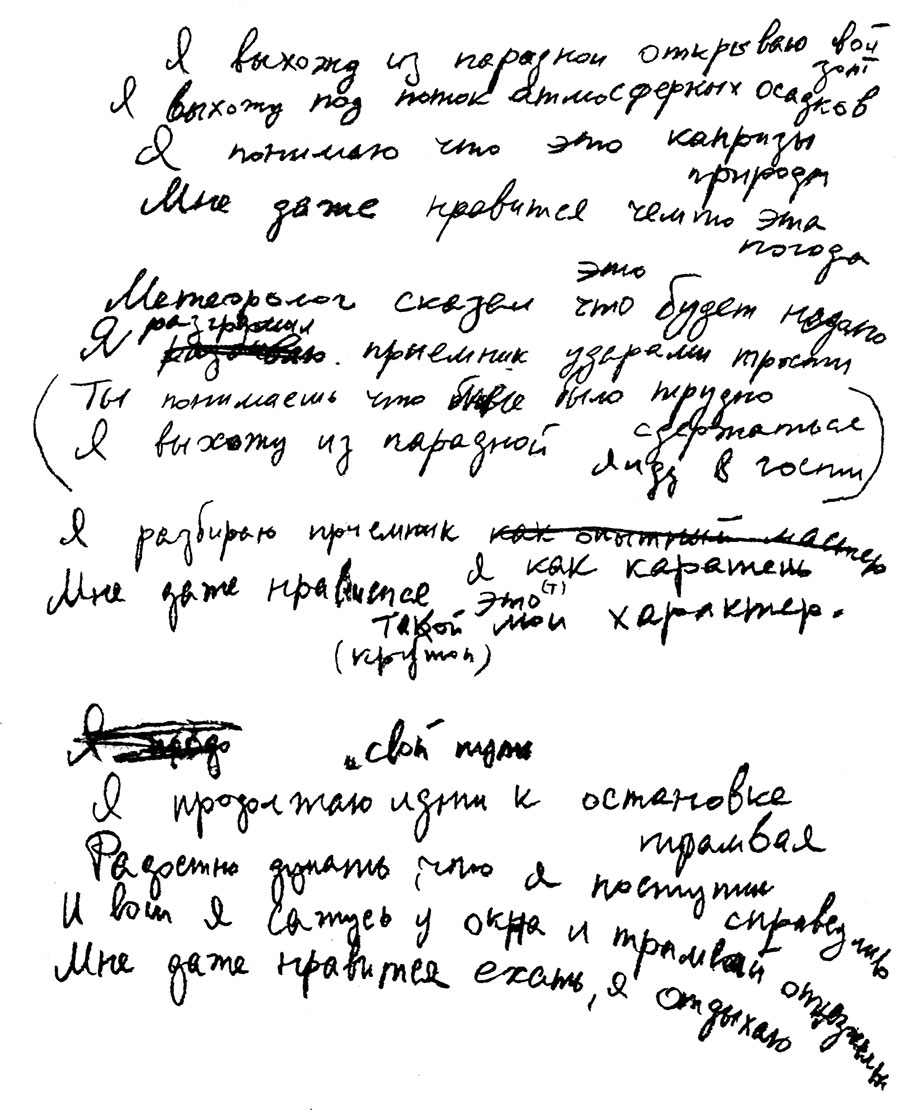 Я выхожу из парадной открываю свой
зонт
Я выхожу под поток атмосферных осадков
Я понимаю что это капризы
природы
Мне даже нравится чем-то эта
погода
это
Метеоролог сказал что будет недолго
разгромил
Я приемник ударами трости
(Ты понимаешь что было трудно
сдержаться
Я выхожу из парадной
я иду в гости)
Я разбираю приемник как опытный мастер
я как каратель
Мне даже нравится это(т)
такой мой характер.
(крутой)
Я
"свой путь
Я продолжаю идти к остановке
трамвая
Радостно думать, что я поступил
справедливо
И вот я сажусь у окна и трамвай отъезжает
Мне даже нравится ехать, я отдыхаю